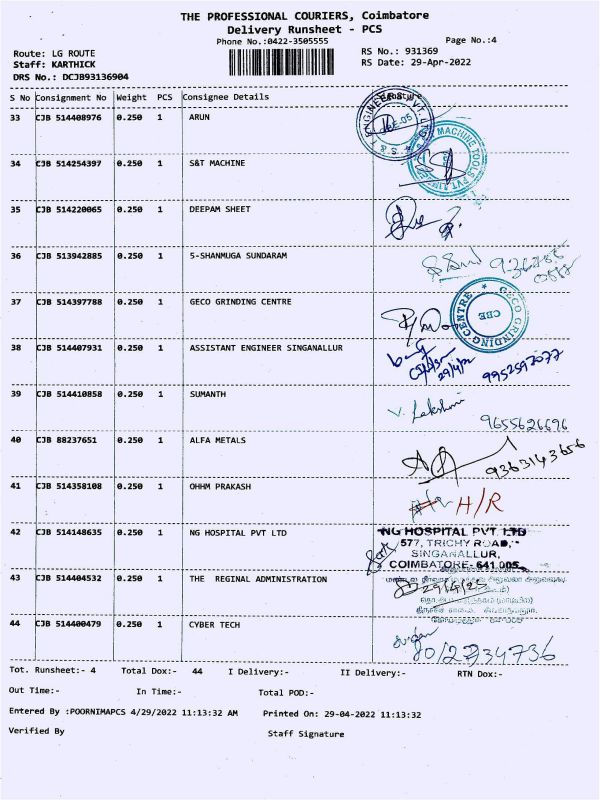 THE PROFESSIONAL COURIERS, Coimbatore
Delivery Runsheet - PCS
Phone No.:0422-3505555
Page No.:4
Route: LG ROUTE
RS No.: 931369
Staff: KARTHICK
RS Date: 29-Apr-2022
DRS No.: DCJB93136904
S No Consignment No Weight PCS Consignee Details
33 CJB 514408976 0.250 1 ARUN
34 CJB 514254397 0.250 1 S&T MACHINE
MACHINE TOOLS PVT
35 CJB 514220065 0.250 1 DEEPAM SHEET
36 CJB 513942885 0.250 1 5-SHANMUGA SUNDARAM
37 CJB 514397788 0.250 1 GECO GRINDING CENTRE
GECO GRINDING CENTRE
CBE
38 CJB 514407931 0.250 1 ASSISTANT ENGINEER SINGANALLUR
29/4/22
9952597077
39 CJB 514410858 0.250 1 SUMANTH
V. Lakshmi
9655626696
40 CJB 88237651 0.250 1 ALFA METALS
9363143656
41 CJB 514358108 0.250 1 OHHM PRAKASH
H/R
42 CJB 514148635 0.250 1 NG HOSPITAL PVT LTD
NG HOSPITAL PVT. LTD
577, TRICHY ROAD,
SINGANALLUR,
COIMBATORE- 641 005
43 CJB 514404532 0.250 1 THE REGINAL ADMINISTRATION
44 CJB 514400479 0.250 1 CYBER TECH
Tot. Runsheet:- 4 Total Dox:- 44 I Delivery:- II Delivery:- RTN Dox:-
Out Time:- In Time:- Total POD:-
Entered By :POORNIMAPCS 4/29/2022 11:13:32 AM Printed On: 29-04-2022 11:13:32
Verified By Staff Signature